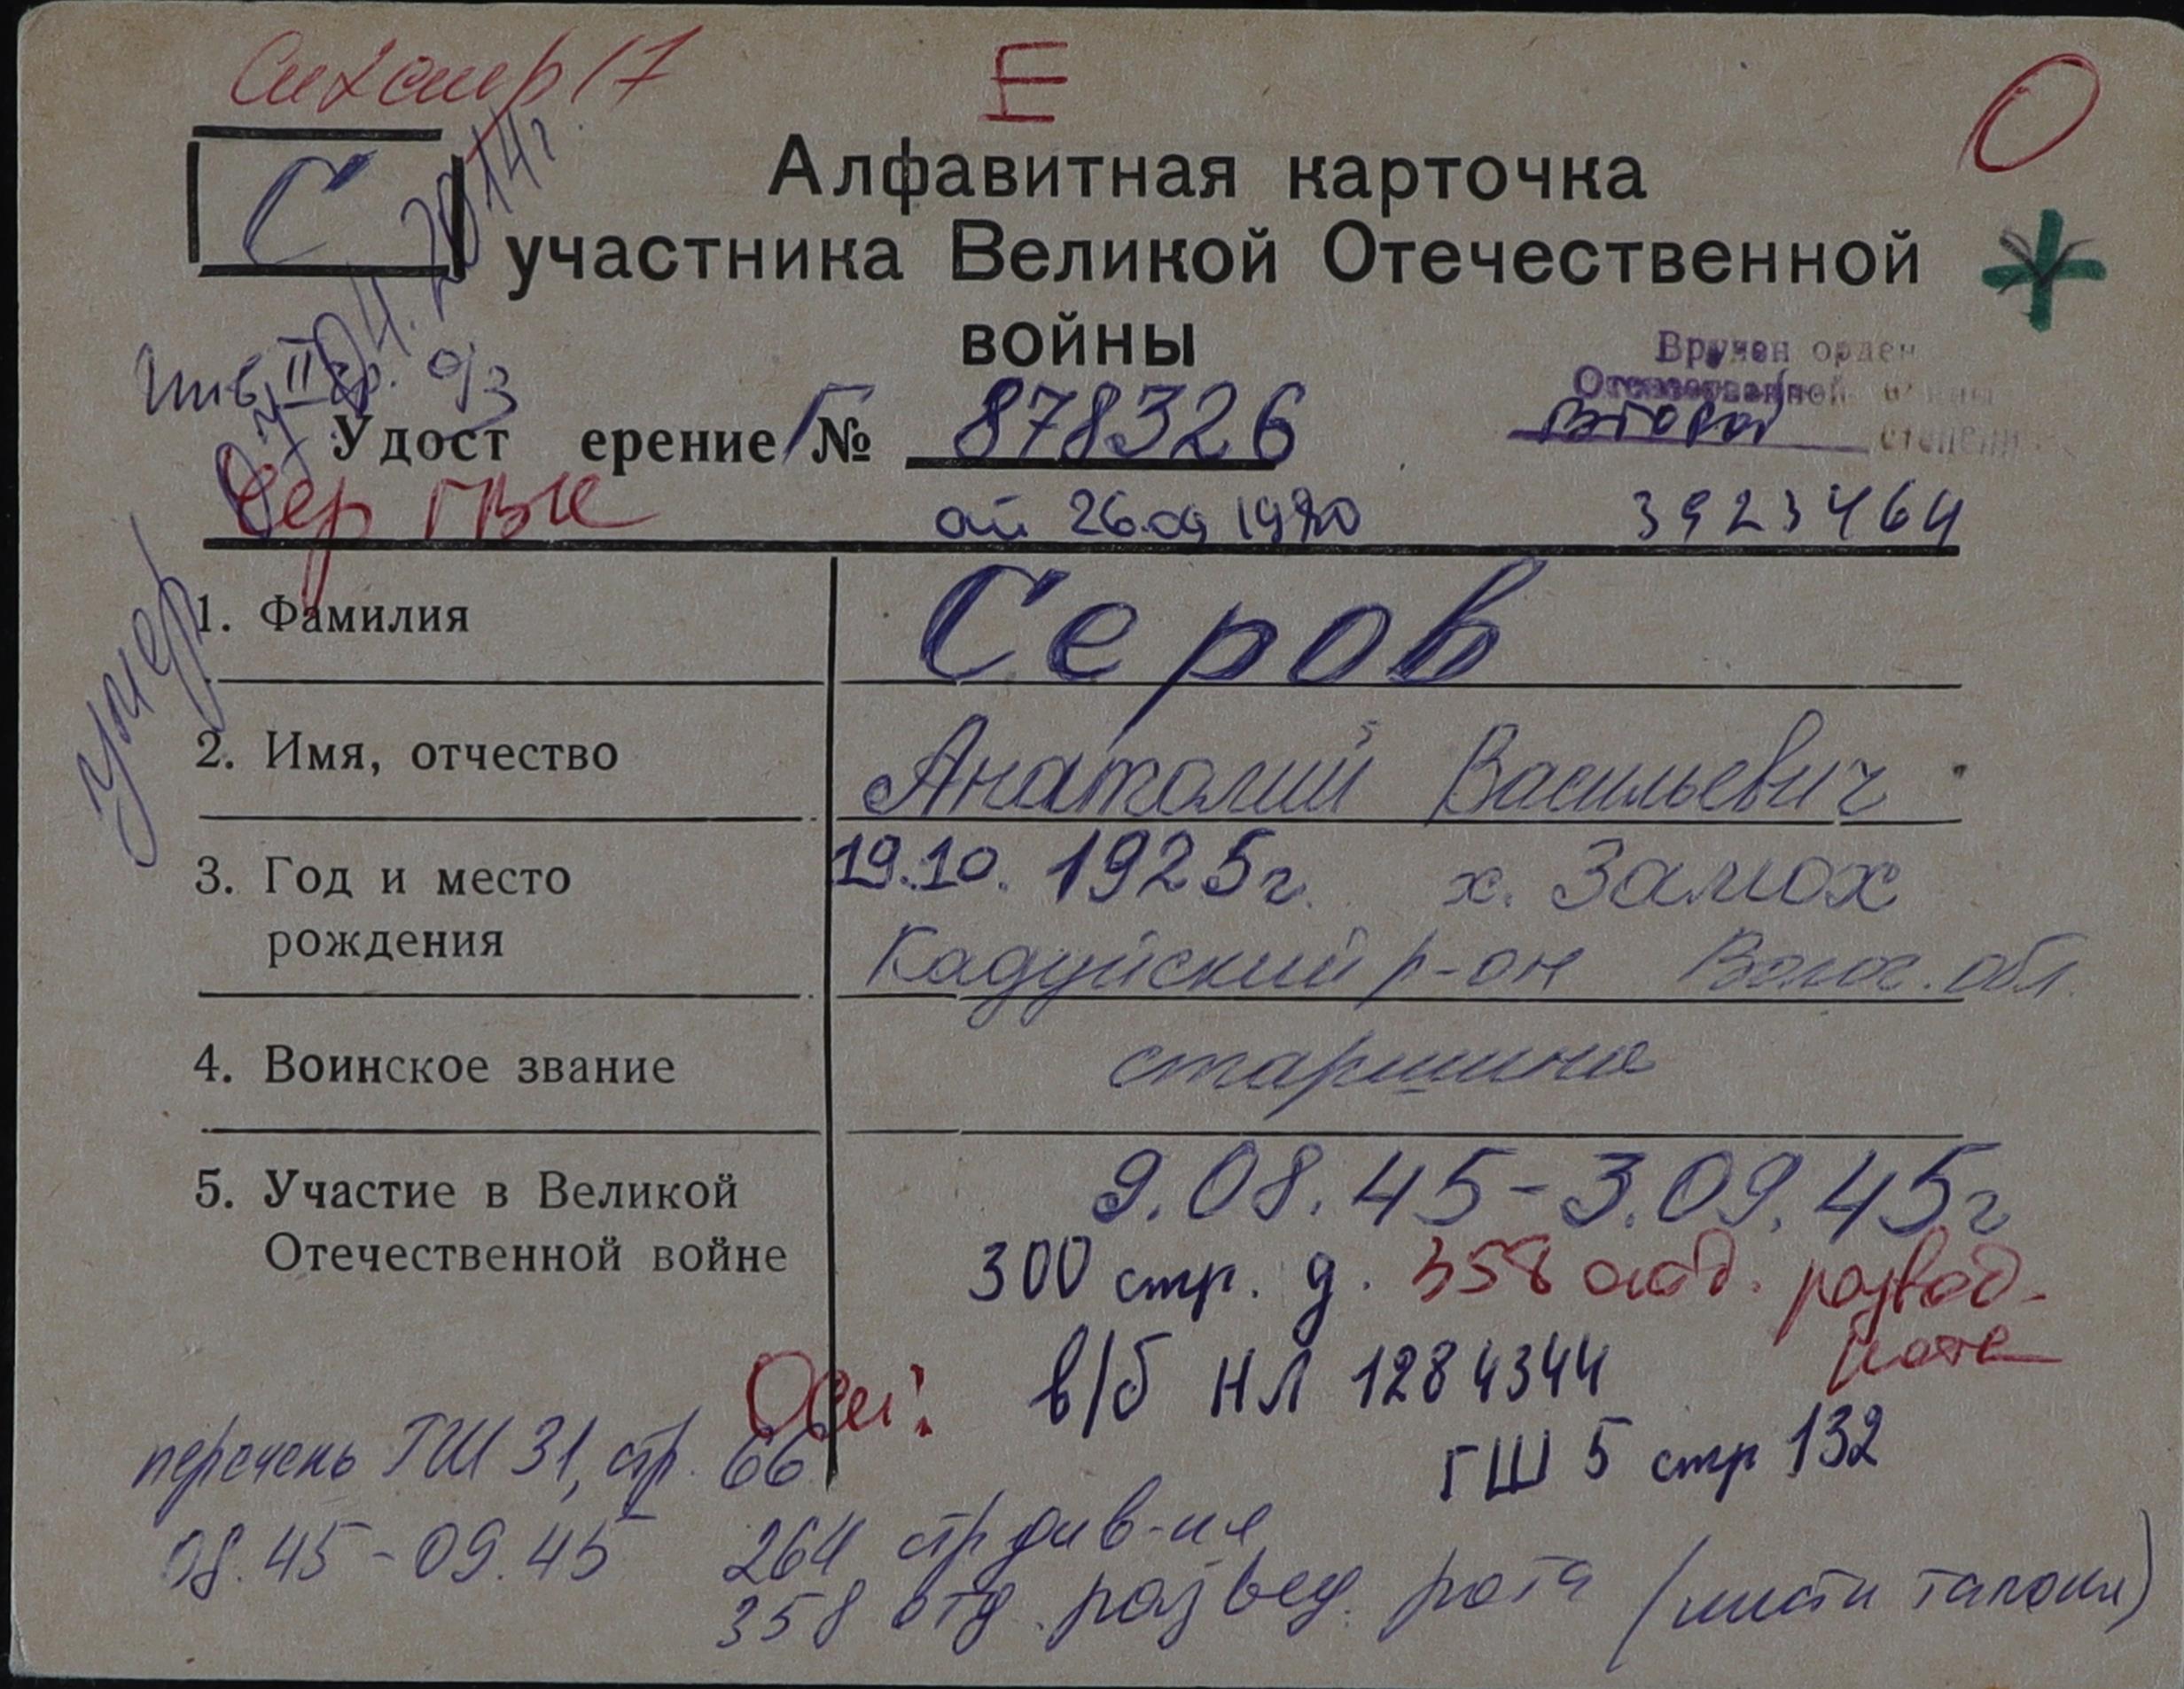 Е
О
С
Алфавитная карточка
участника Великой Отечественной
войны
Инв. II гр. о/з
2014г.
Вручен орден
Отечественной войны
второй степени
Удост ерение Г № 878326
Чер ГВК
от 26.09 1980
3923464
умер
1. Фамилия
Серов
2. Имя, отчество
Анатолий Васильевич
3. Год и место
рождения
19.10. 1925г. х. Замох
Кадуйский р-он Волог. обл.
4. Воинское звание
старшина
5. Участие в Великой
Отечественной войне
9.08.45-3.09.45г
300 стр. д. 358 отд. развед.
рота
Осн: в/б НЛ 1284344
ГШ 5 стр 132
перечень ГШ 31, стр. 66
08.45-09.45 264 стр див-ия
358 отд. развед. рота (листы талоны)